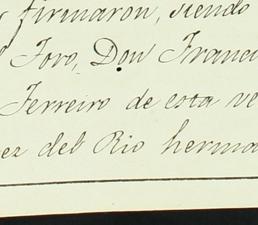 firmaron, siendo
Toro, Don Franci
Ferreiro de esta ve
ez del Rio herma